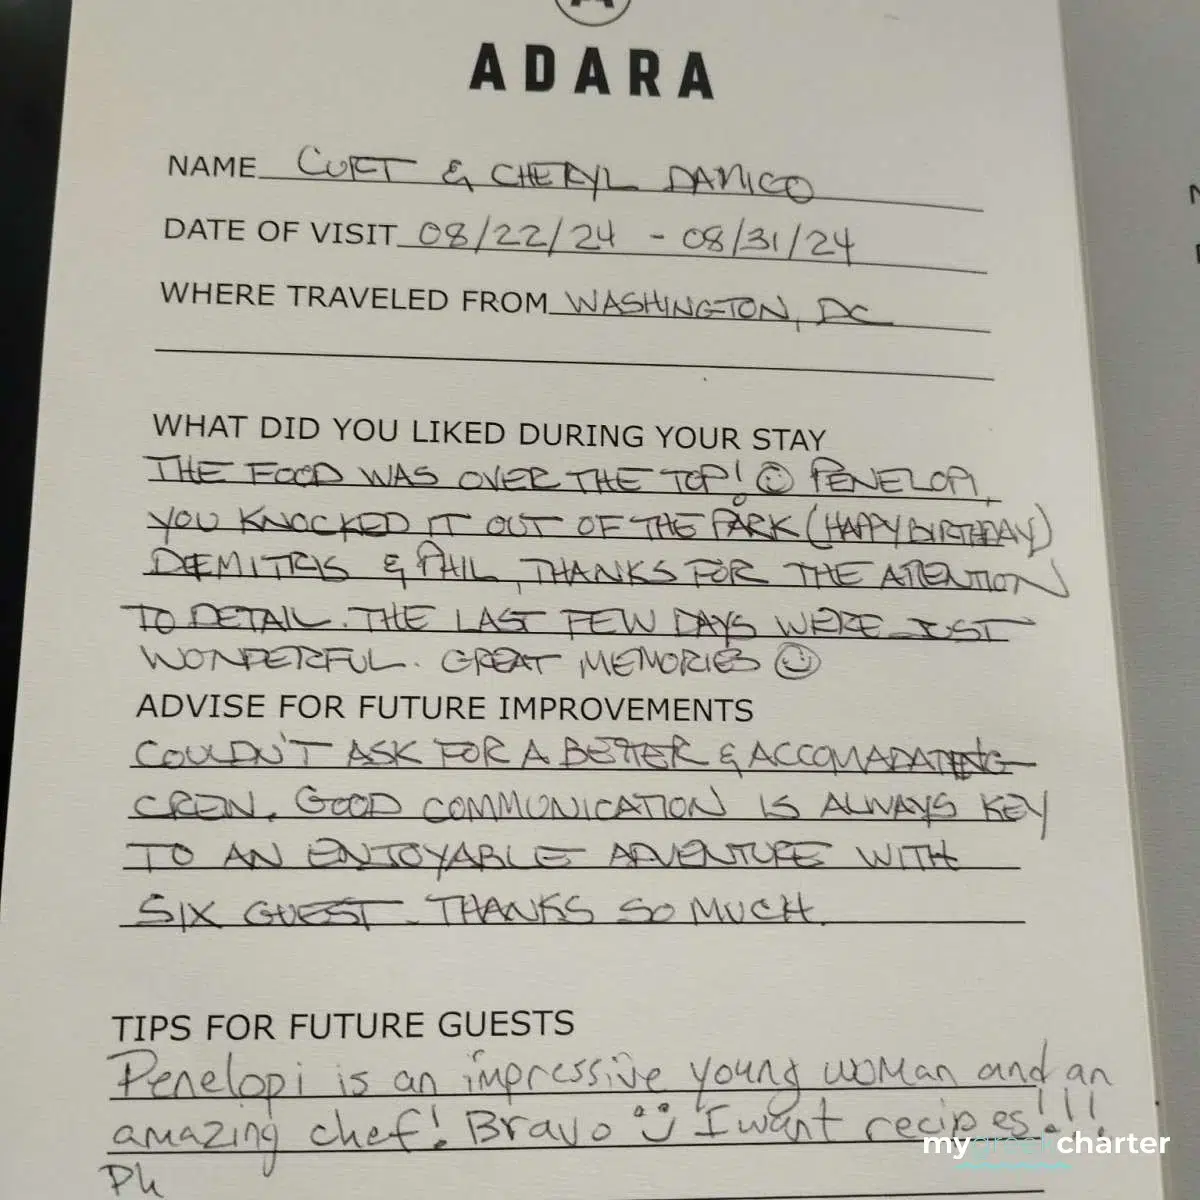 ADARA
NAME CURT & CHERYL DANICO
DATE OF VISIT 08/22/24 - 08/31/24
WHERE TRAVELED FROM WASHINGTON, DC
WHAT DID YOU LIKED DURING YOUR STAY
THE FOOD WAS OVER THE TOP! ☺ PENELOPI,
YOU KNOCKED IT OUT OF THE PARK (HAPPY BIRTHDAY)
DEMITRIS & PHIL, THANKS FOR THE ATENTION
TO DETAIL. THE LAST FEW DAYS WERE JUST
WONDERFUL. GREAT MEMORIES ☺
ADVISE FOR FUTURE IMPROVEMENTS
COULDN'T ASK FOR A BETTER & ACCOMADATING
CREW. GOOD COMMUNICATION IS ALWAYS KEY
TO AN ENJOYABLE ADVENTURE WITH
SIX GUEST. THANKS SO MUCH.
TIPS FOR FUTURE GUESTS
Penelopi is an impressive young woman and an
amazing chef! Bravo I want recipes!!!
Ph
mygreekcharter